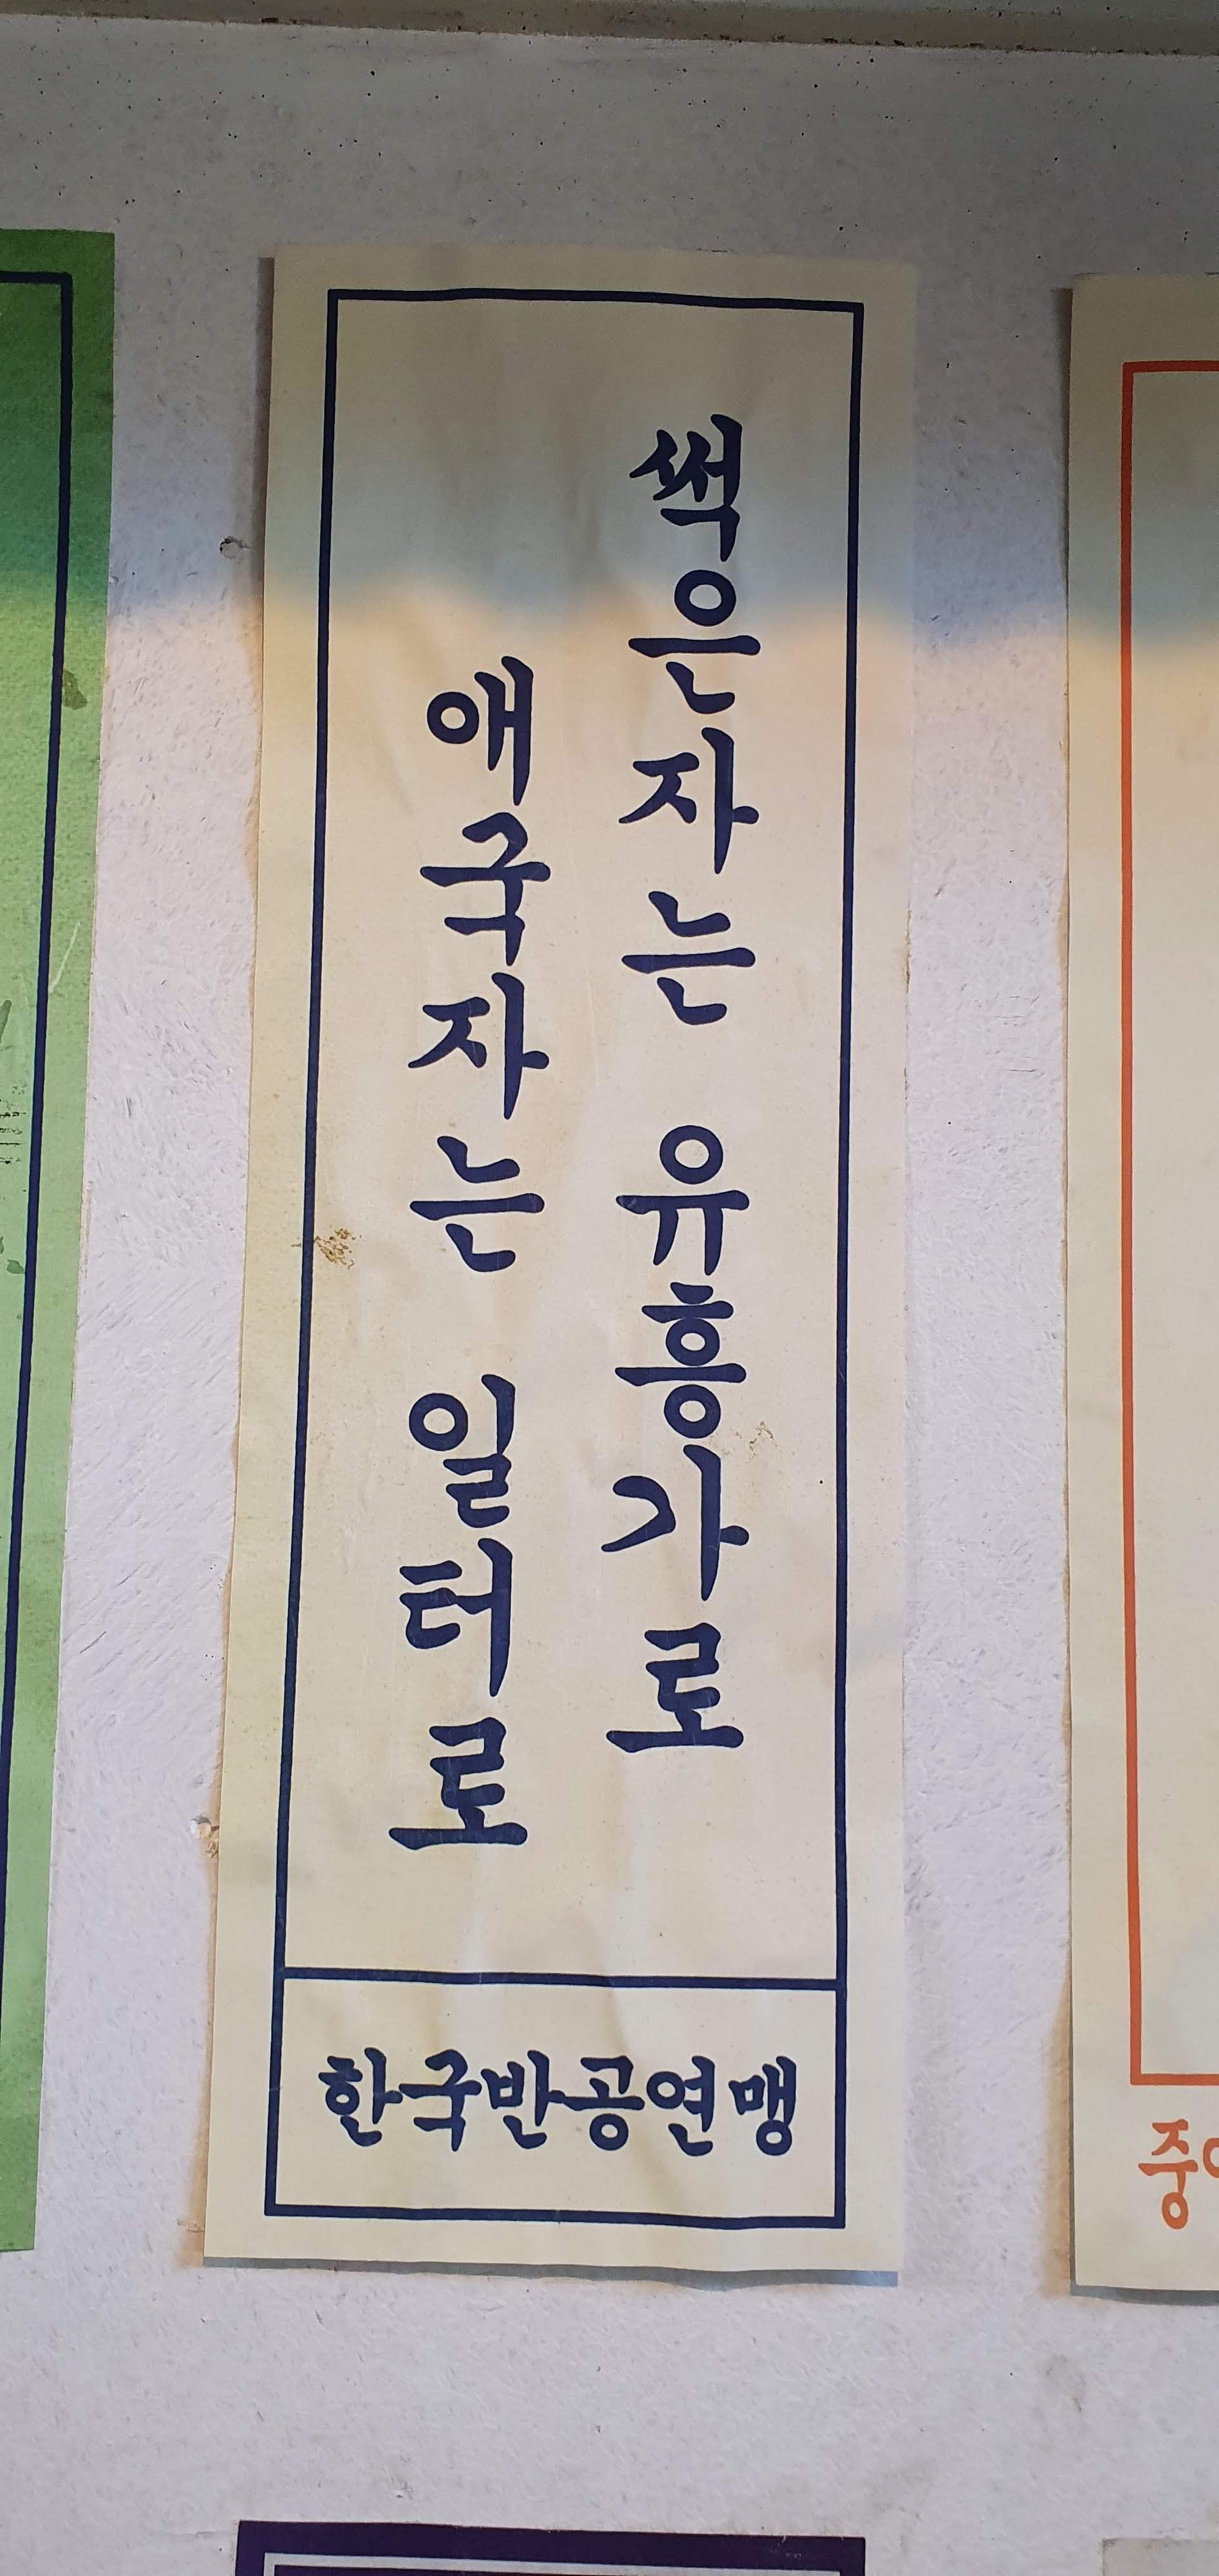 썩은자는 유흥가로
애국자는 일터로
한국반공연맹